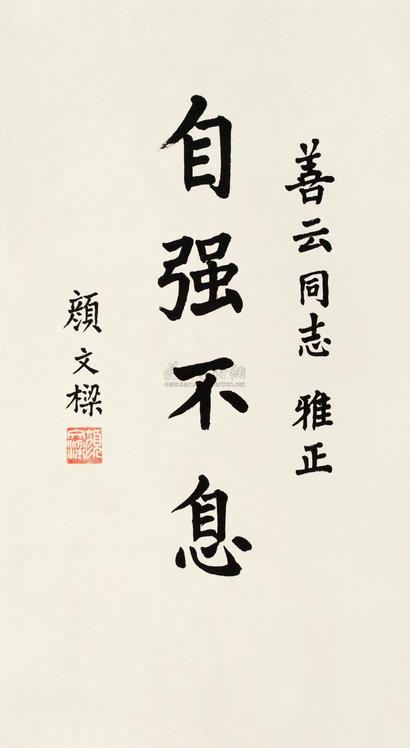 善云同志 雅正
自强不息
颜文樑